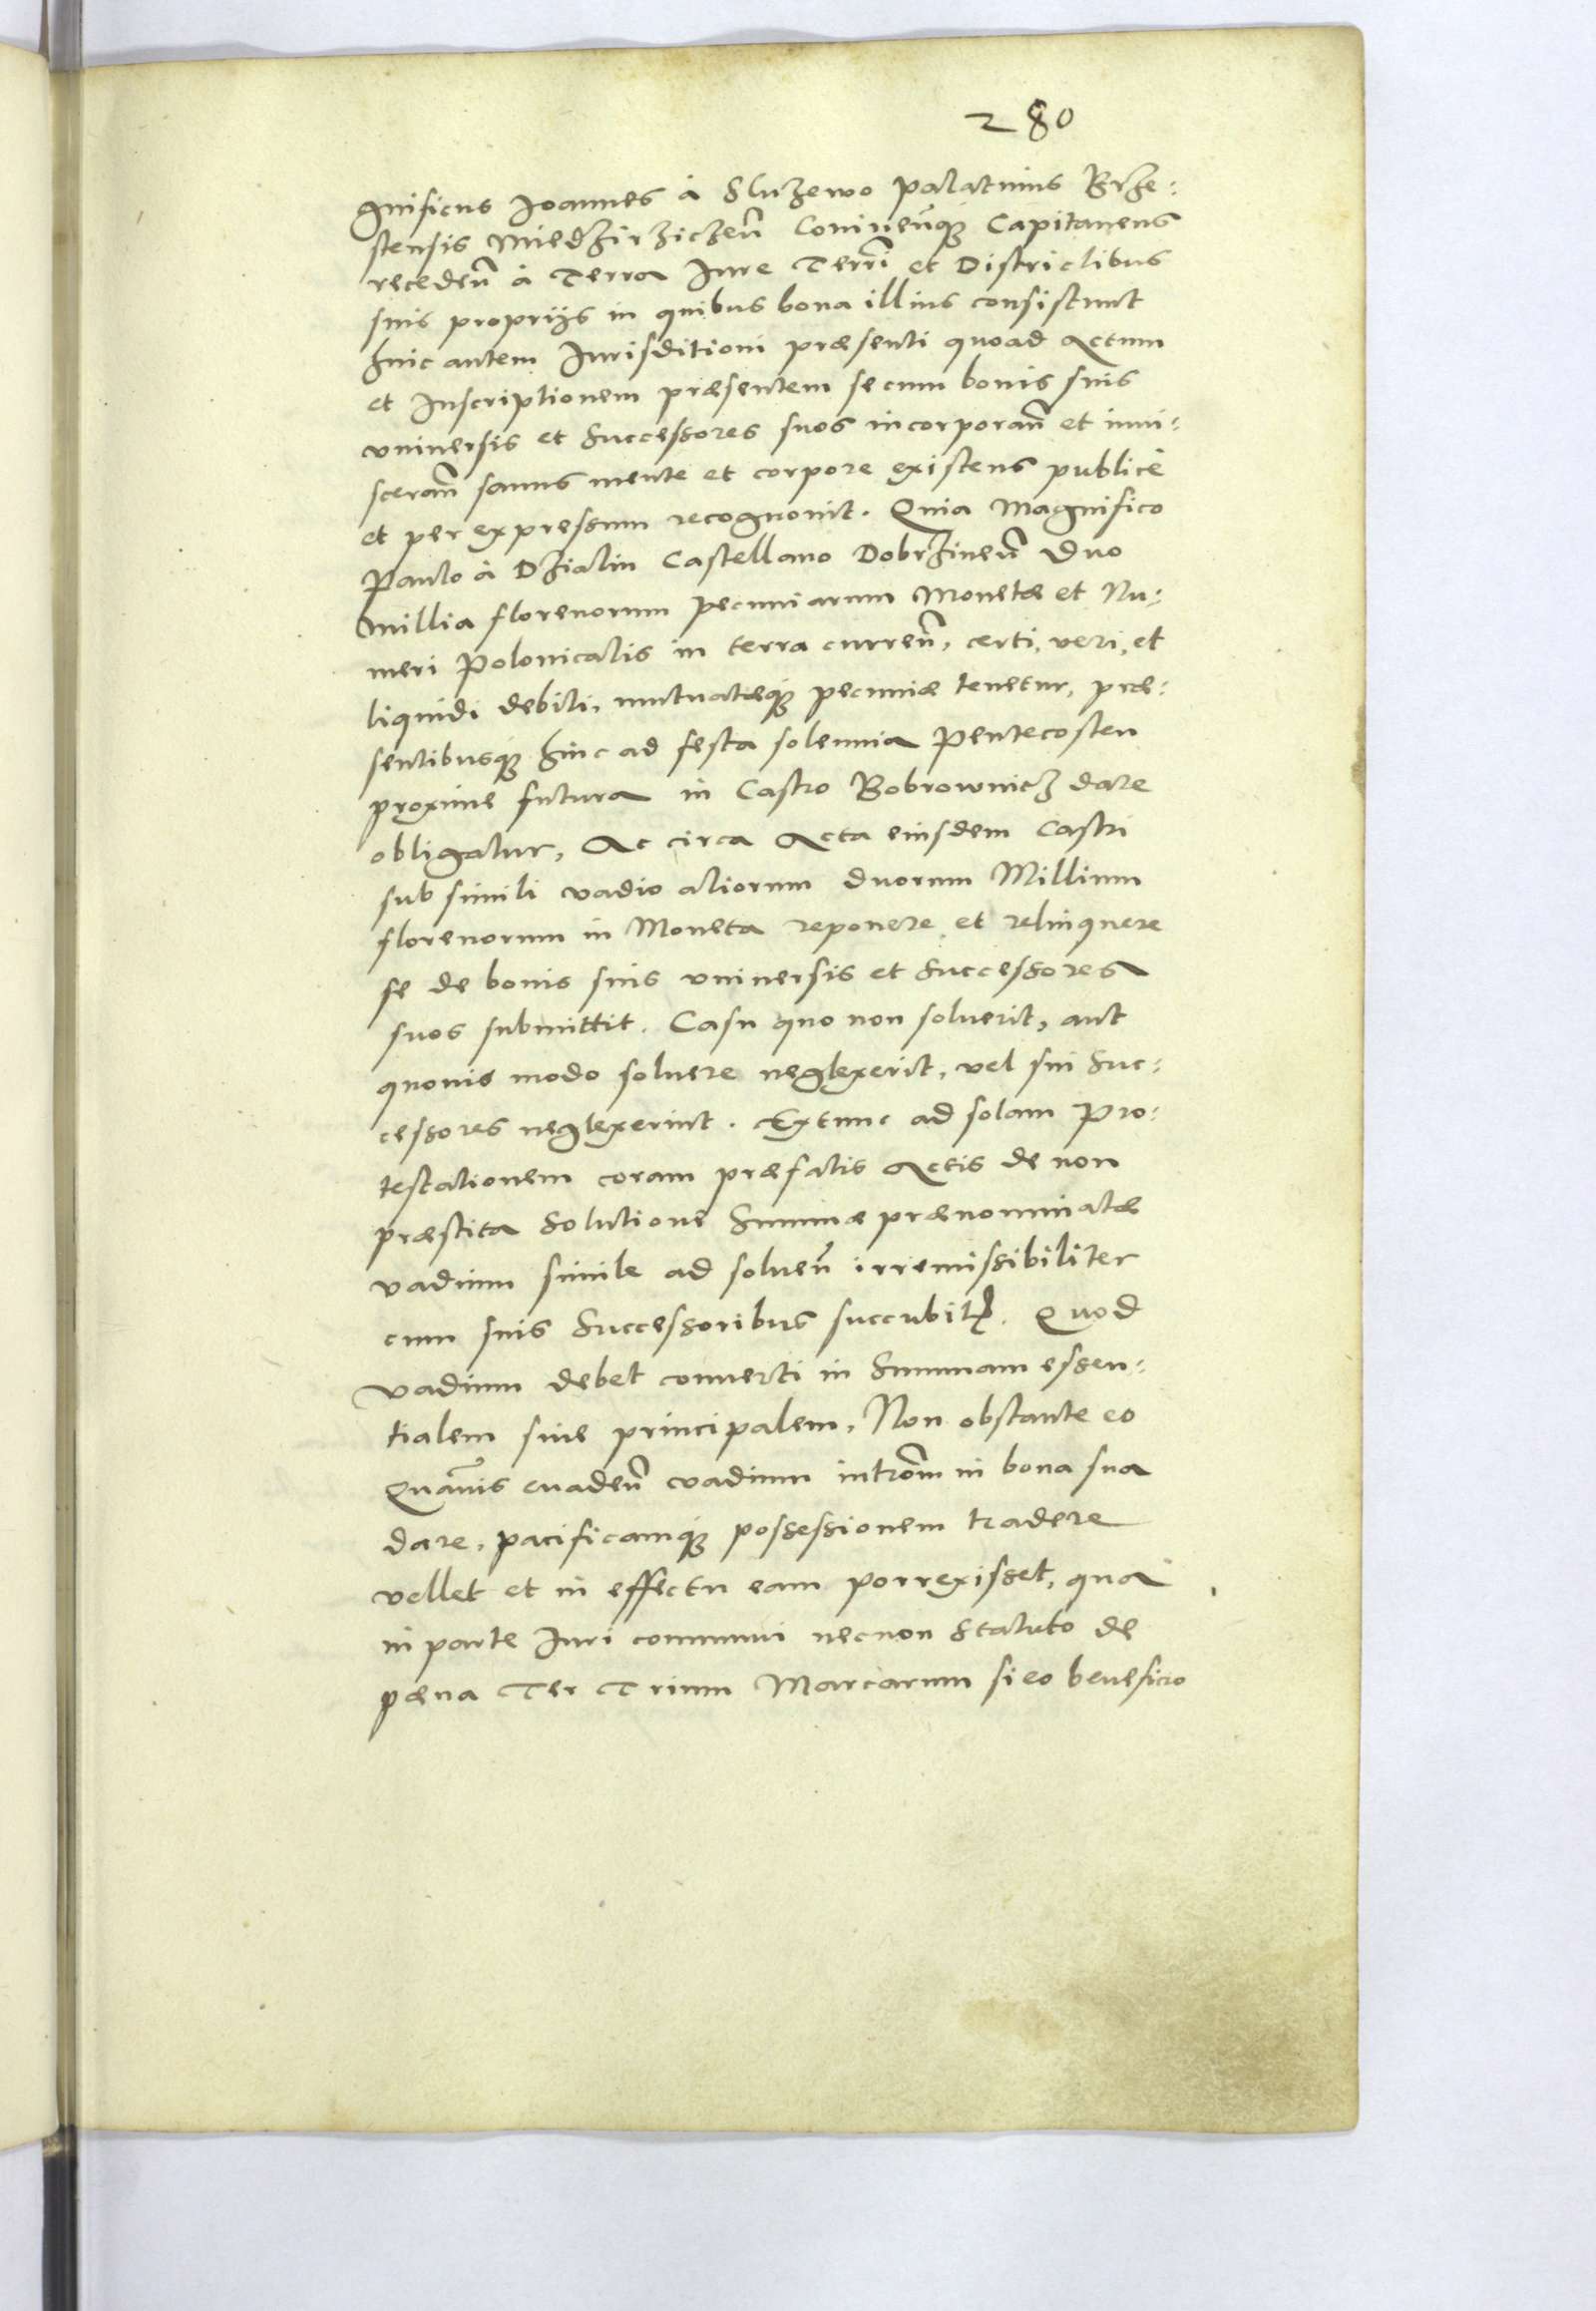 280
gnificus Joannes à Sluzewo Palatinus Brze:
stensis Miedzirziczeñ Covineñque Capitaneus
recedeñ à Terra Jure Terrȓi et Districtibus
suis proprijs in quibus bona illius consistunt
huic autem Jurisditioni præsenti quoad Actum
et Inscriptionem præsentem se cum bonis suis
vniuersis et Successores suos incorporañ et inui:
sceram̃ sanus mente et corpore existens publicè
et per expressum recognouit. Quia Magnifico
Paulo à Dzialin Castellano Dobrzineñ Duo
Millia florenorum pecuniarum Monetæ et Nu:
meri Polonicalis in terra curreñ, certi, veri, et
liquidi debiti, mutuatæque pecuniæ tenetur, præ:
sentibusque hinc ad festa solennia Pentecosten
proxime futura in Castro Bobrownicz dare
obligatur, Ac circa Acta eiusdem Castri
sub simili vadio aliorum duorum Millium
florenorum in Moneta reponere et relinquere
se de bonis suis vniuersis et Successores
suos submittit. Casu quo non soluerit, aut
quouis modo soluere neglexerit, vel sui Suc:
cessores neglexerint. Extunc ad solam Pro:
testationem coram præfatis Actis de non
præstita Solutione Summæ prænominatæ
vadium simile ad solueñ irremissibiliter
cum suis Successoribus succubit. Quod
vadium debet conuerti in Summam essen:
tialem siue principalem, Non obstante eo
Quãuis euadeñ vadium introm̃ in bona sua
dare, pacificamque possessionem tradere
vellet et in effectu eam porrexisset, qua
in parte Juri communi necnon Statuto de
pæna Ter Trium Marcarum si eo beneficio